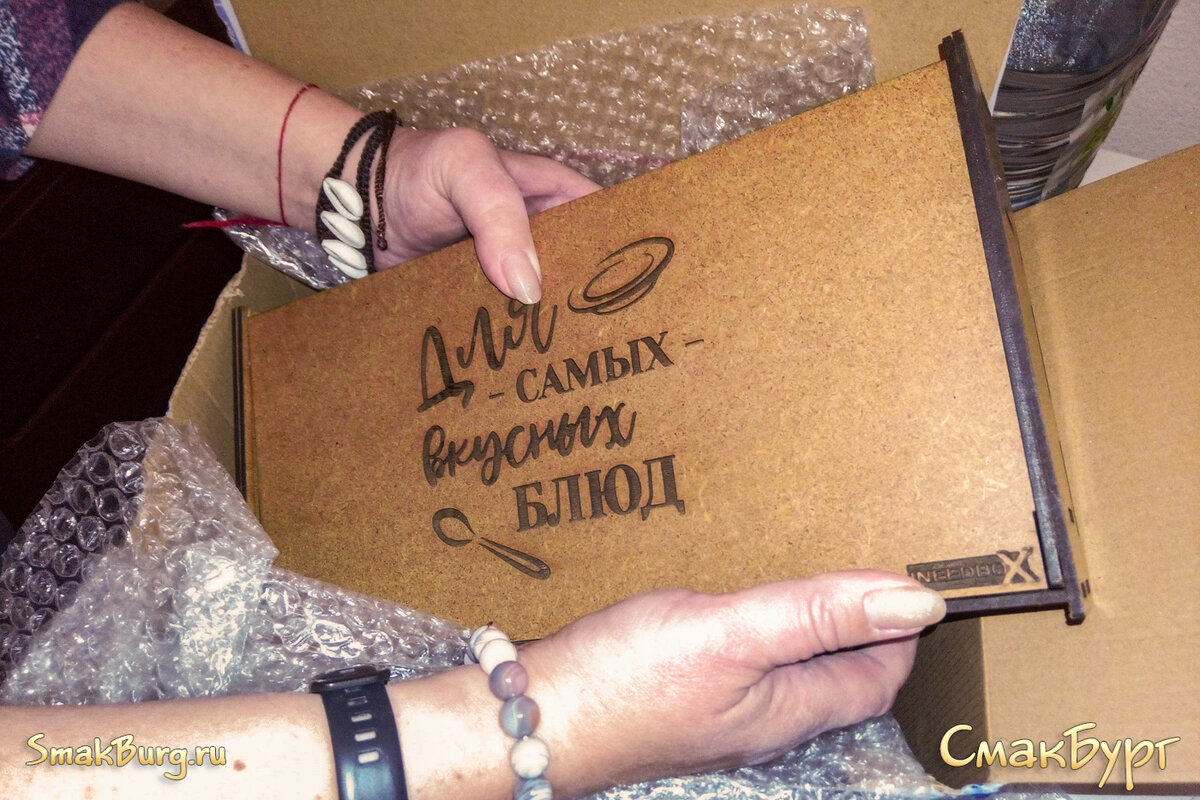 Для
- САМЫХ -
вкусных
БЛЮД
NEEDBOX
SmakBurg.ru
СмакБург